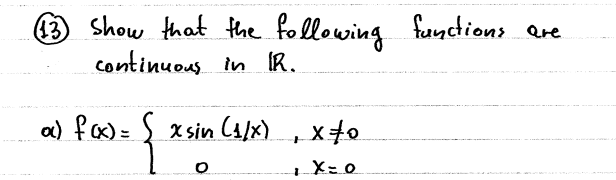 (13) Show that the following functions are
continuous in ℝ.
a) f(x) = { x sin (1/x) , x ≠ 0
0 , x = 0